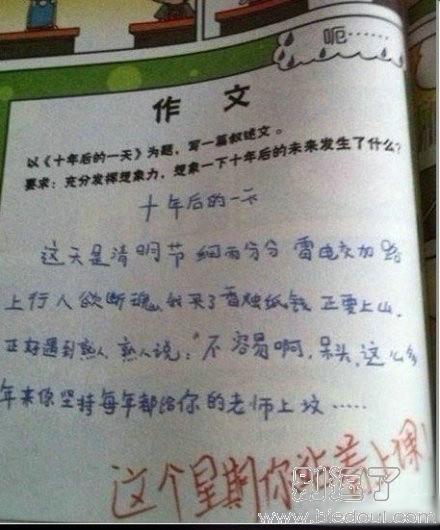 呃……
作 文
以《十年后的一天》为题，写一篇叙述文。
要求：充分发挥想象力，想象一下十年后的未来发生了什么？
十年后的一天
这天是清明节 细雨分分 雷电交加 路
上行人欲断魂，我买了香烛纸钱 正要上山，
正好遇到熟人 熟人说：“不容易啊，呆头，这么多
年来你坚持每年都给你的老师上坟……
这个星期你站着上课！
别逗了
www.biedoul.com